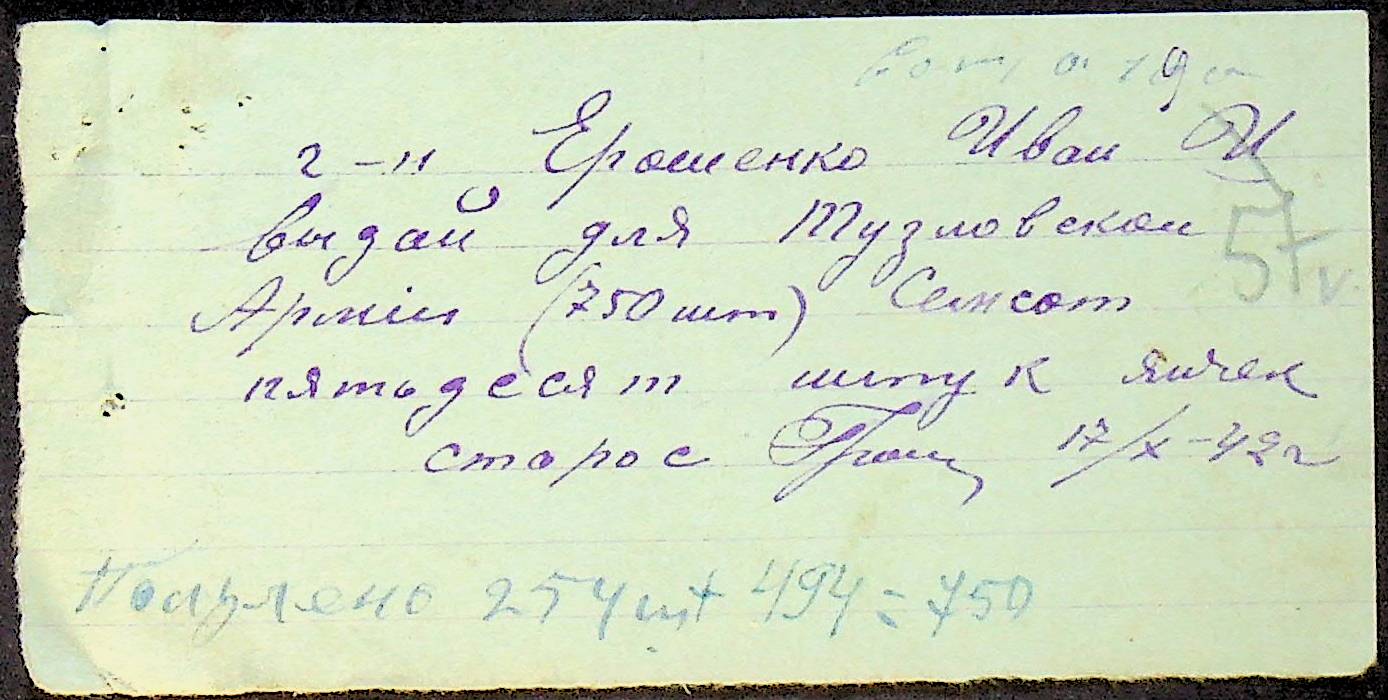 г-н Ерошенко Иван И
выдай для Тузловской
Армии (750 шт) Семсот
пятьдесят штук яичек
старос 17/X-42г
Получено 254 шт 494 = 750
57